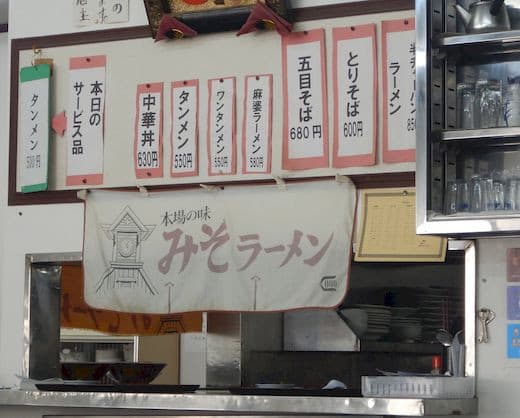 タンメン
500円
本日の
サービス品
中華丼
630円
タンメン
550円
ワンタンメン
550円
麻婆ラーメン
580円
五目そば
680円
とりそば
600円
ラーメン
本場の味
みそラーメン